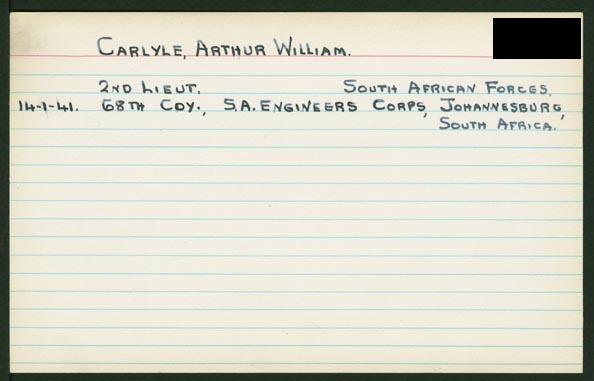 CARLYLE, ARTHUR WILLIAM.
2ND LIEUT. SOUTH AFRICAN FORCES.
14-1-41. 68TH COY., S.A. ENGINEERS CORPS, JOHANNESBURG,
SOUTH AFRICA.